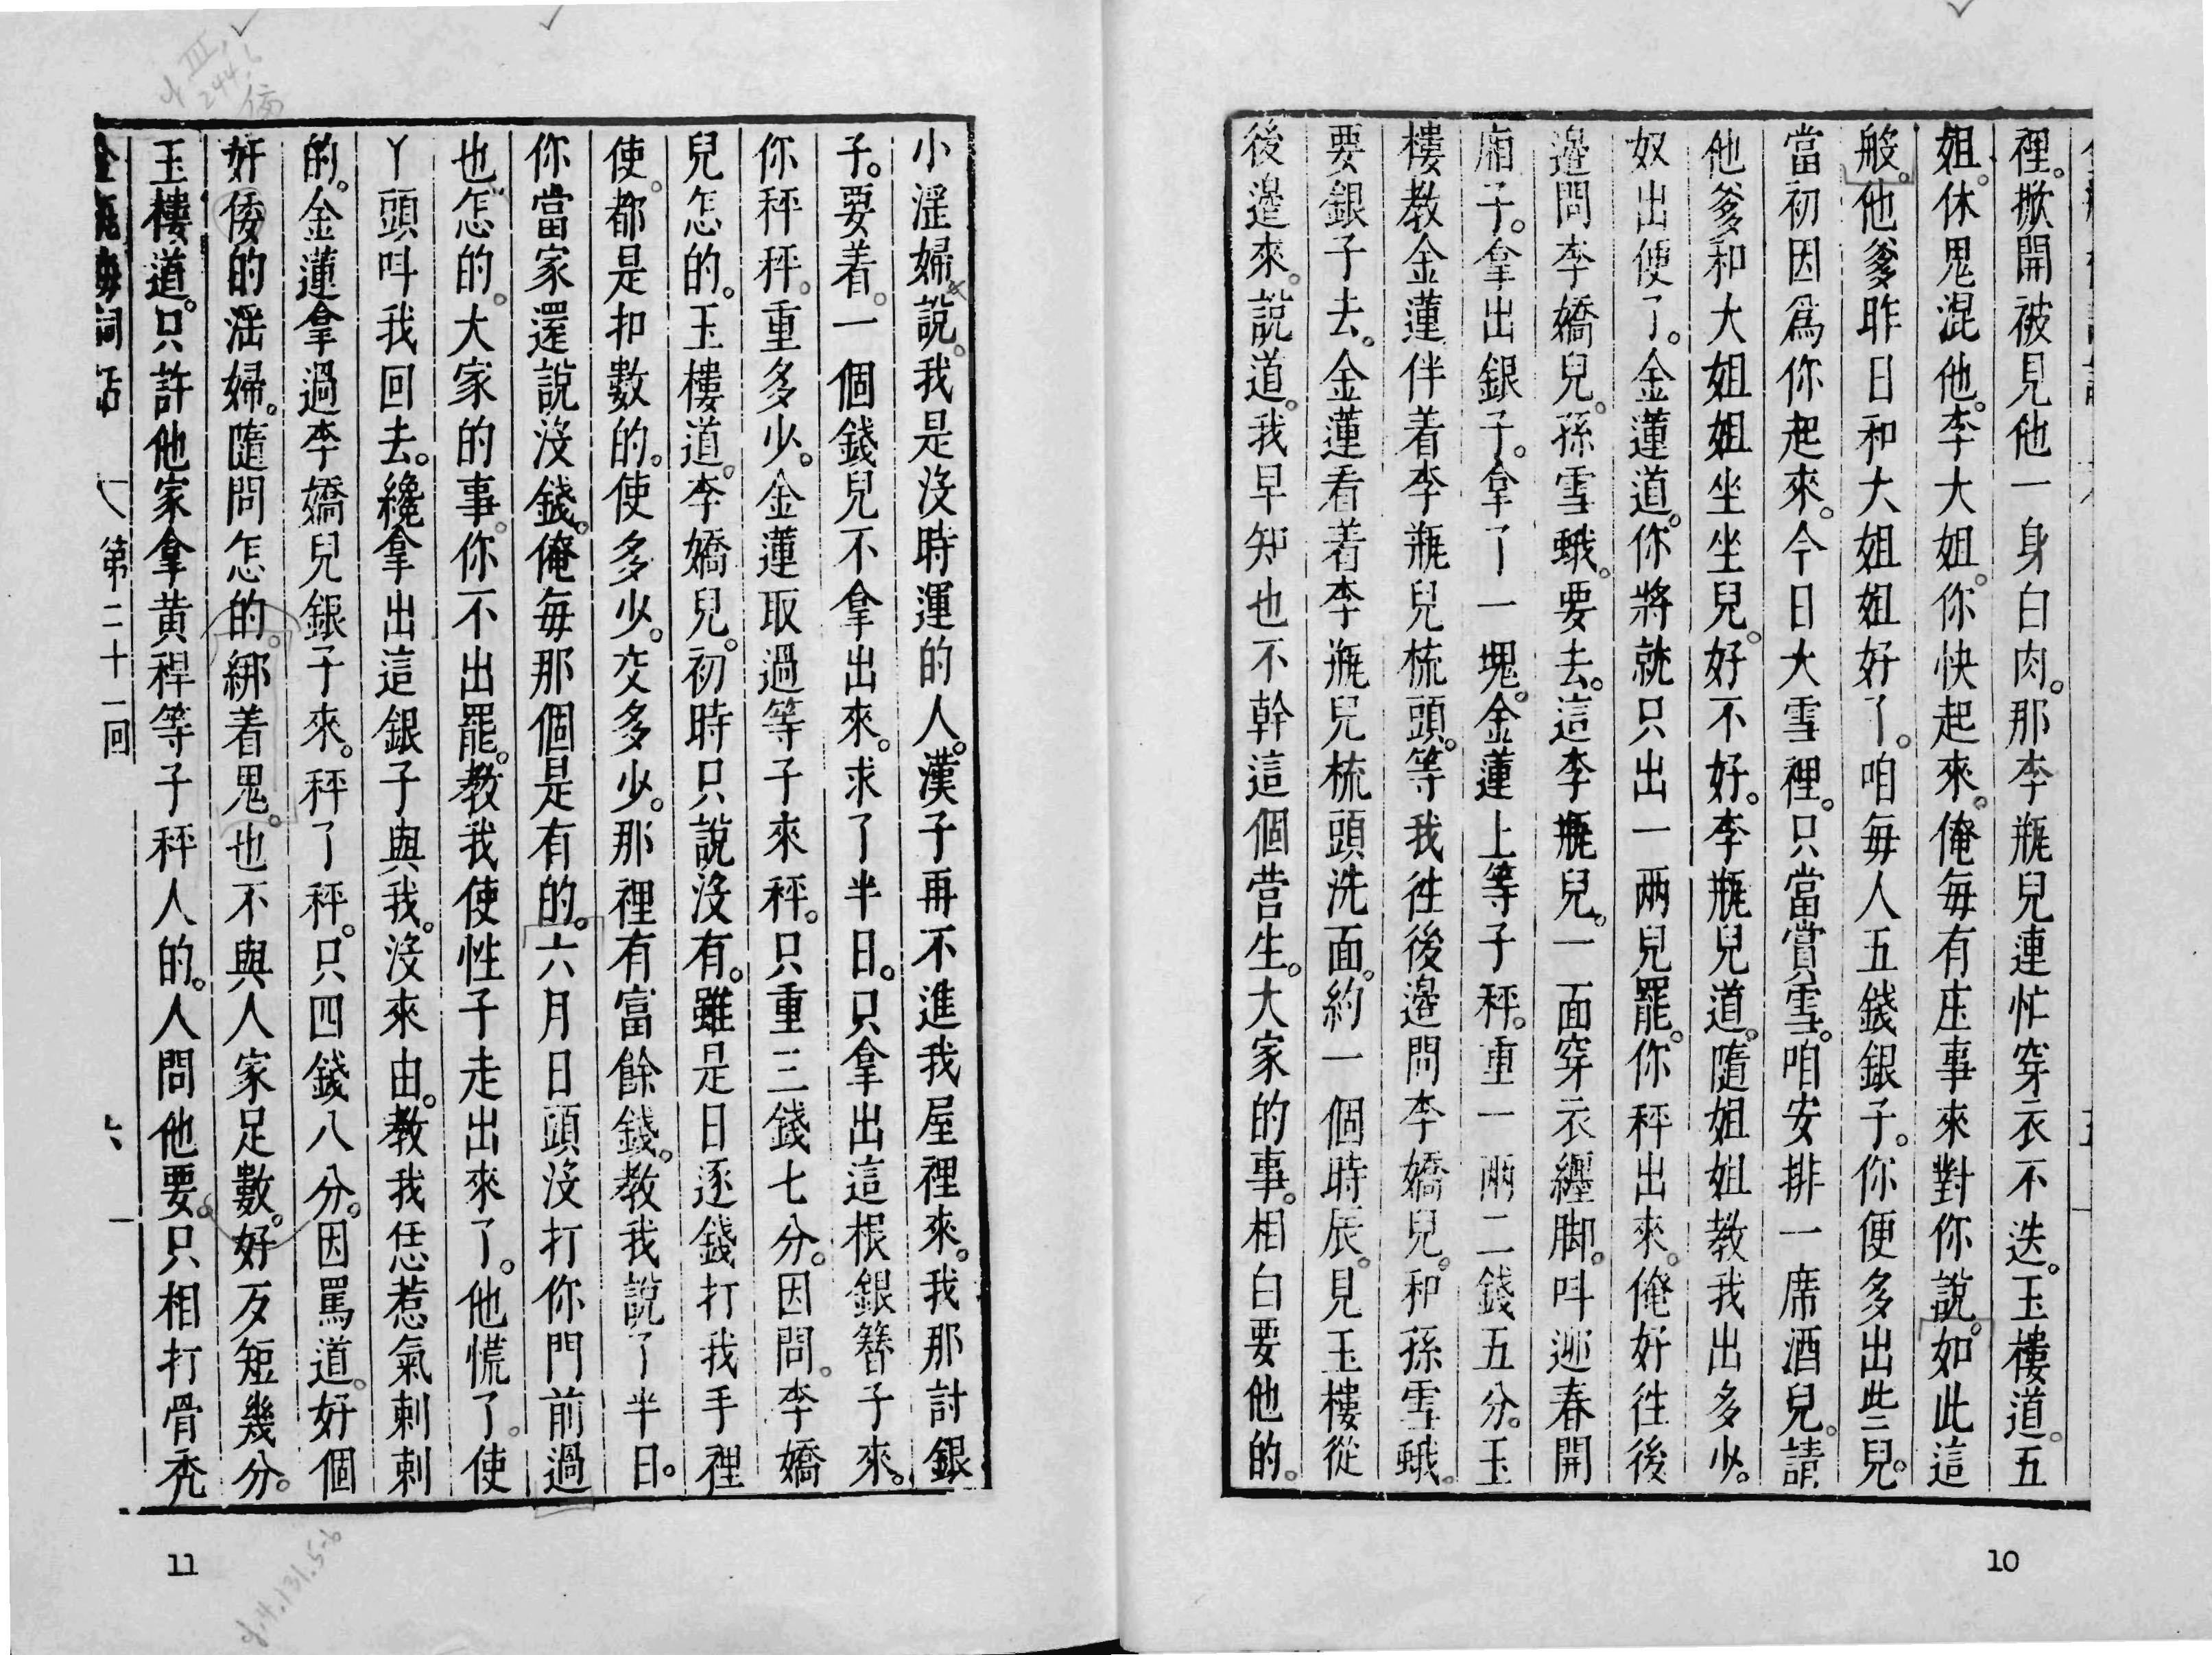 裡。掀開被見他一身白肉。那李瓶兒連忙穿衣不迭。玉樓道。五
姐。休鬼混他。李大姐。你快起來。俺每有庄事來對你說。如此這
般。他爹昨日和大姐姐好了。咱每人五錢銀子。你便多出些兒。
當初因爲你起來。今日大雪裡。只當賞雪。咱安排一席酒兒。請
他爹和大姐姐坐坐兒。好不好。李瓶兒道。隨姐姐教我出多少。
奴出便了。金蓮道。你將就只出一兩兒罷。你秤出來。俺好往後
邊問李嬌兒。孫雪蛾。要去。這李瓶兒。一面穿衣纏脚。呌迎春開
廂子。拿出銀子。拿了一塊。金蓮上等子秤。重一兩二錢五分。玉
樓教金蓮伴着李瓶兒梳頭。等我徃後邊問李嬌兒。和孫雪蛾。
要銀子去。金蓮看着李瓶兒梳頭洗面。約一個時辰。見玉樓從
後邊來。說道。我早知也不幹這個營生。大家的事。相白要他的。
10
小淫婦說。我是没時運的人。漢子再不進我屋裡來。我那討銀
子。要着。一個錢兒不拿出來。求了半日。只拿出這根銀簪子來。
你秤秤。重多少。金蓮取過等子來秤。只重三錢七分。因問。李嬌
兒怎的。玉樓道。李嬌兒。初時只說没有。雖是日逐錢打我手裡
使。都是扣數的。使多少。交多少。那裡有富餘錢。教我說了半日。
你當家還說没錢。俺每那個是有的。六月日頭没打你門前過
也怎的。大家的事。你不出罷。教我使性子走出來了。他慌了。使
丫頭呌我回去。纔拿出這銀子與我。没來由。教我恁惹氣剌剌
的。金蓮拿過李嬌兒銀子來。秤了秤。只四錢八分。因罵道。好個
奸倭的淫婦。隨問怎的。綁着鬼。也不與人家足數。好歹短幾分。
玉樓道。只許他家拿黃稈等子秤人的。人問他要。只相打骨禿
金瓶梅詞話 第二十一回 六
11